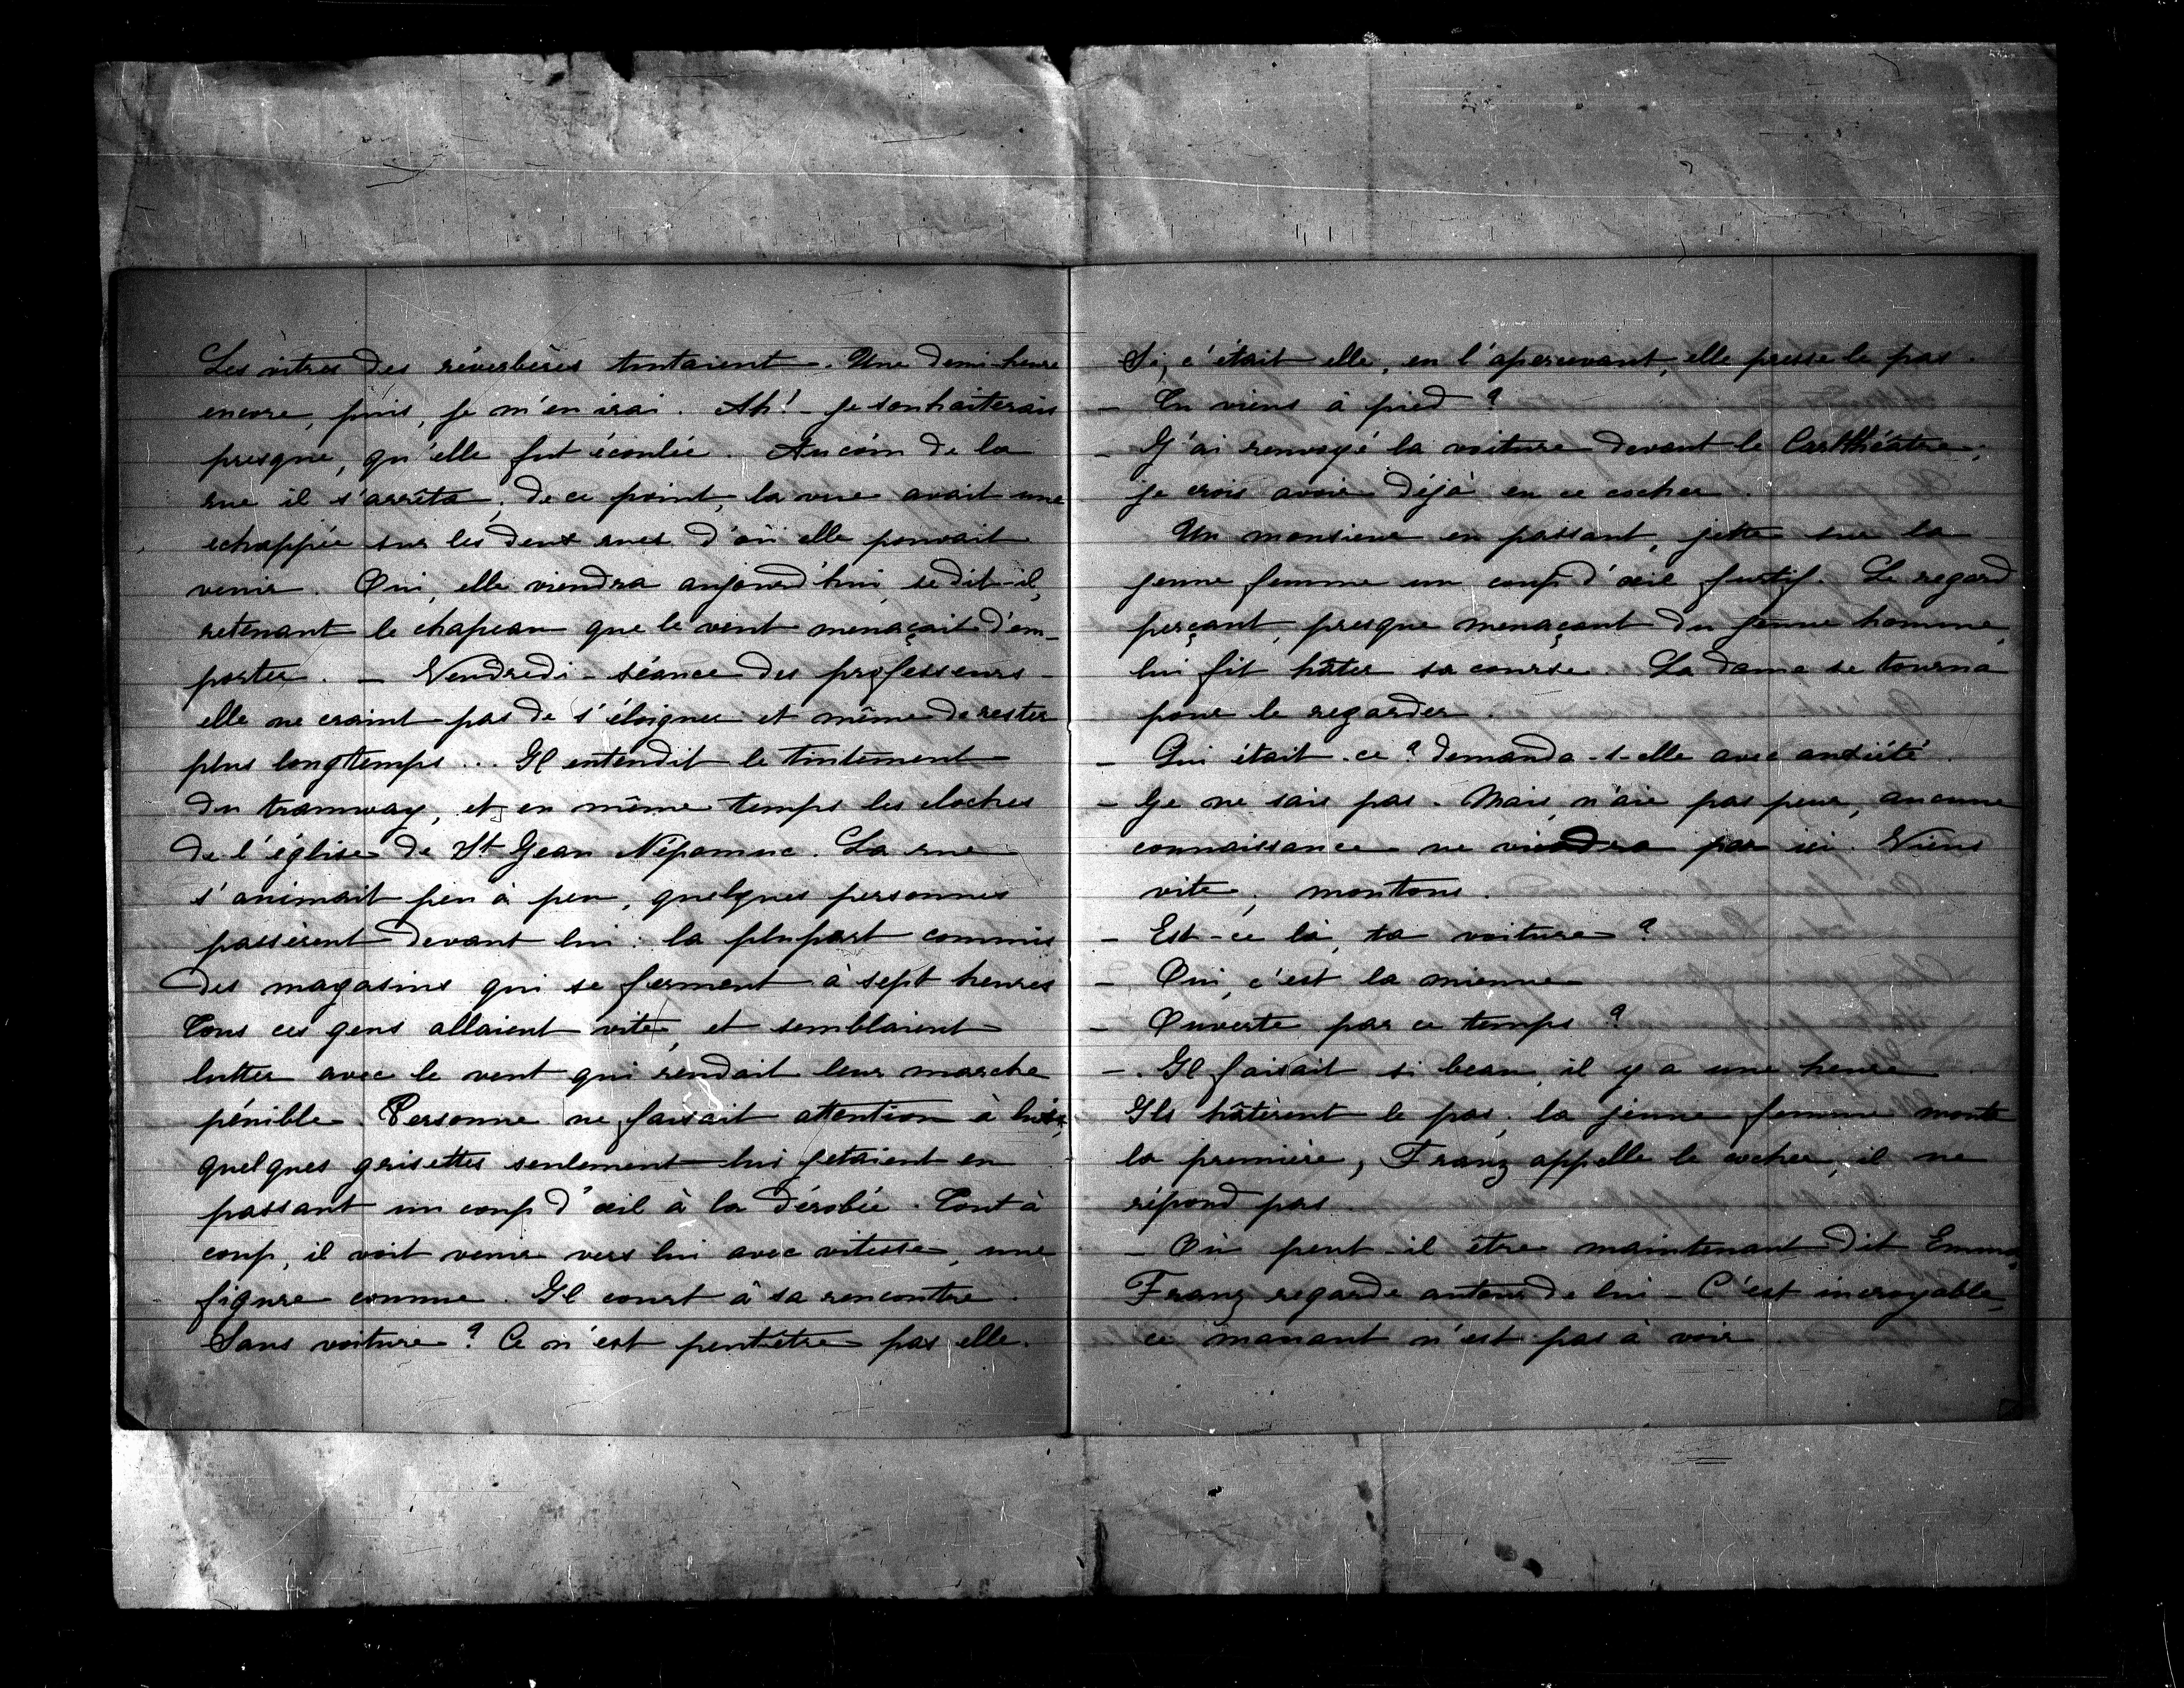 Les vitres des réverbères tintaient. Une demi-heure
encore, puis, je m'en irai. Ah! - je souhaiterais
presque, qu'elle fut écoulée. Au coin de la
rue il s'arrêta, de ce point, la vue avait une
échappée sur les deux rues d'où elle pouvait
venir. Oui, elle viendra aujourd'hui, se dit-il,
retenant le chapeau que le vent menaçait d'em-
porter. - Vendredi - séance des professeurs -
elle ne craint pas de s'éloigner et même de rester
plus longtemps... Il entendit le tintement
du tramway, et en même temps les cloches
de l'église de St Jean Népomuc. La rue
s'animait peu à peu, quelques personnes
passèrent devant lui: la plupart commis
des magasins qui se ferment à sept heures
Tous ces gens allaient vite, et semblaient
lutter avec le vent qui rendait leur marche
pénible. Personne ne faisait attention à lui,
quelques grisettes seulement lui jetaient en
passant un coup d'œil à la dérobée. Tout à
coup, il voit venir vers lui avec vitesse, une
figure connue. Il court à sa rencontre.
Sans voiture? Ce n'est peutêtre pas elle.
Si, c'était elle, en l'apercevant, elle presse le pas.
- Tu viens à pied?
- J'ai renvoyé la voiture devant le Carltheâtre,
je crois avoir déjà eu ce cocher.
Un monsieur en passant, jette sur la
jeune femme un coup d'œil furtif. Le regard
perçant, presque menaçant du jeune homme,
lui fit hâter sa course. La dame se tourna
pour le regarder.
- Qui était-ce? demanda-t-elle avec anxiété.
- Je ne sais pas. Mais, n'aie pas peur, aucune
connaissance ne viendra par ici. Viens
vite, montons.
- Est-ce là, ta voiture?
- Oui, c'est la mienne
- Ouverte par ce temps?
- Il faisait si beau, il y a une heure.
Ils hâtèrent le pas, la jeune femme monte
la première, Franz appelle le cocher, il ne
répond pas
- Où peut-il être maintenant dit Emma,
Franz regarde autour de lui - C'est incroyable,
ce manant n'est pas à voir